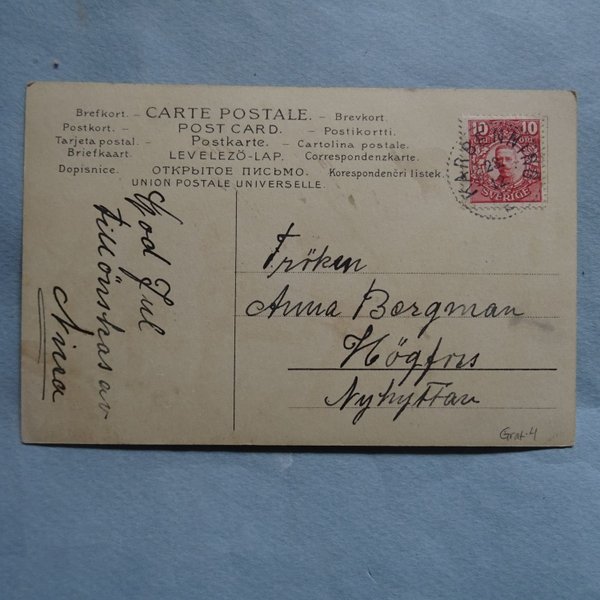 Brefkort. – CARTE POSTALE. – Brevkort.
Postkort. – POST CARD. – Postikortti.
Tarjeta postal. – Postkarte. – Cartolina postale.
Briefkaart. LEVELEZŐ-LAP. Correspondenzkarte.
Dopisnice. ОТКРЫТОЕ ПИСЬМО. Korespondenčri listek.
UNION POSTALE UNIVERSELLE.
10 10
SVERIGE
God Jul
tillönskas av
Nina
Fröken
Anna Bergman
Högfors
Nyhyttan
Grat-4